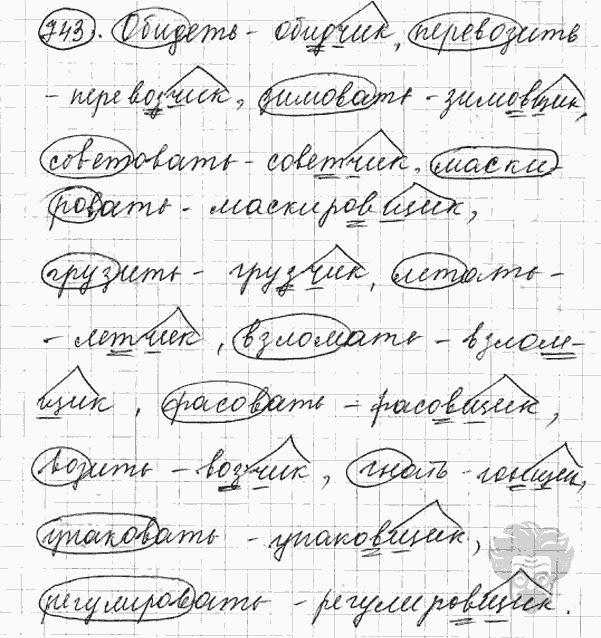 743. Обидеть - обидчик, перевозить
- перевозчик, зимовать - зимовщик,
советовать - советчик, маски-
ровать - маскировщик,
грузить - грузчик, летать -
- летчик, взломать - взлом-
щик, фасовать - фасовщик,
возить - возчик, гнать - гонщик,
упаковать - упаковщик,
регулировать - регулировщик.